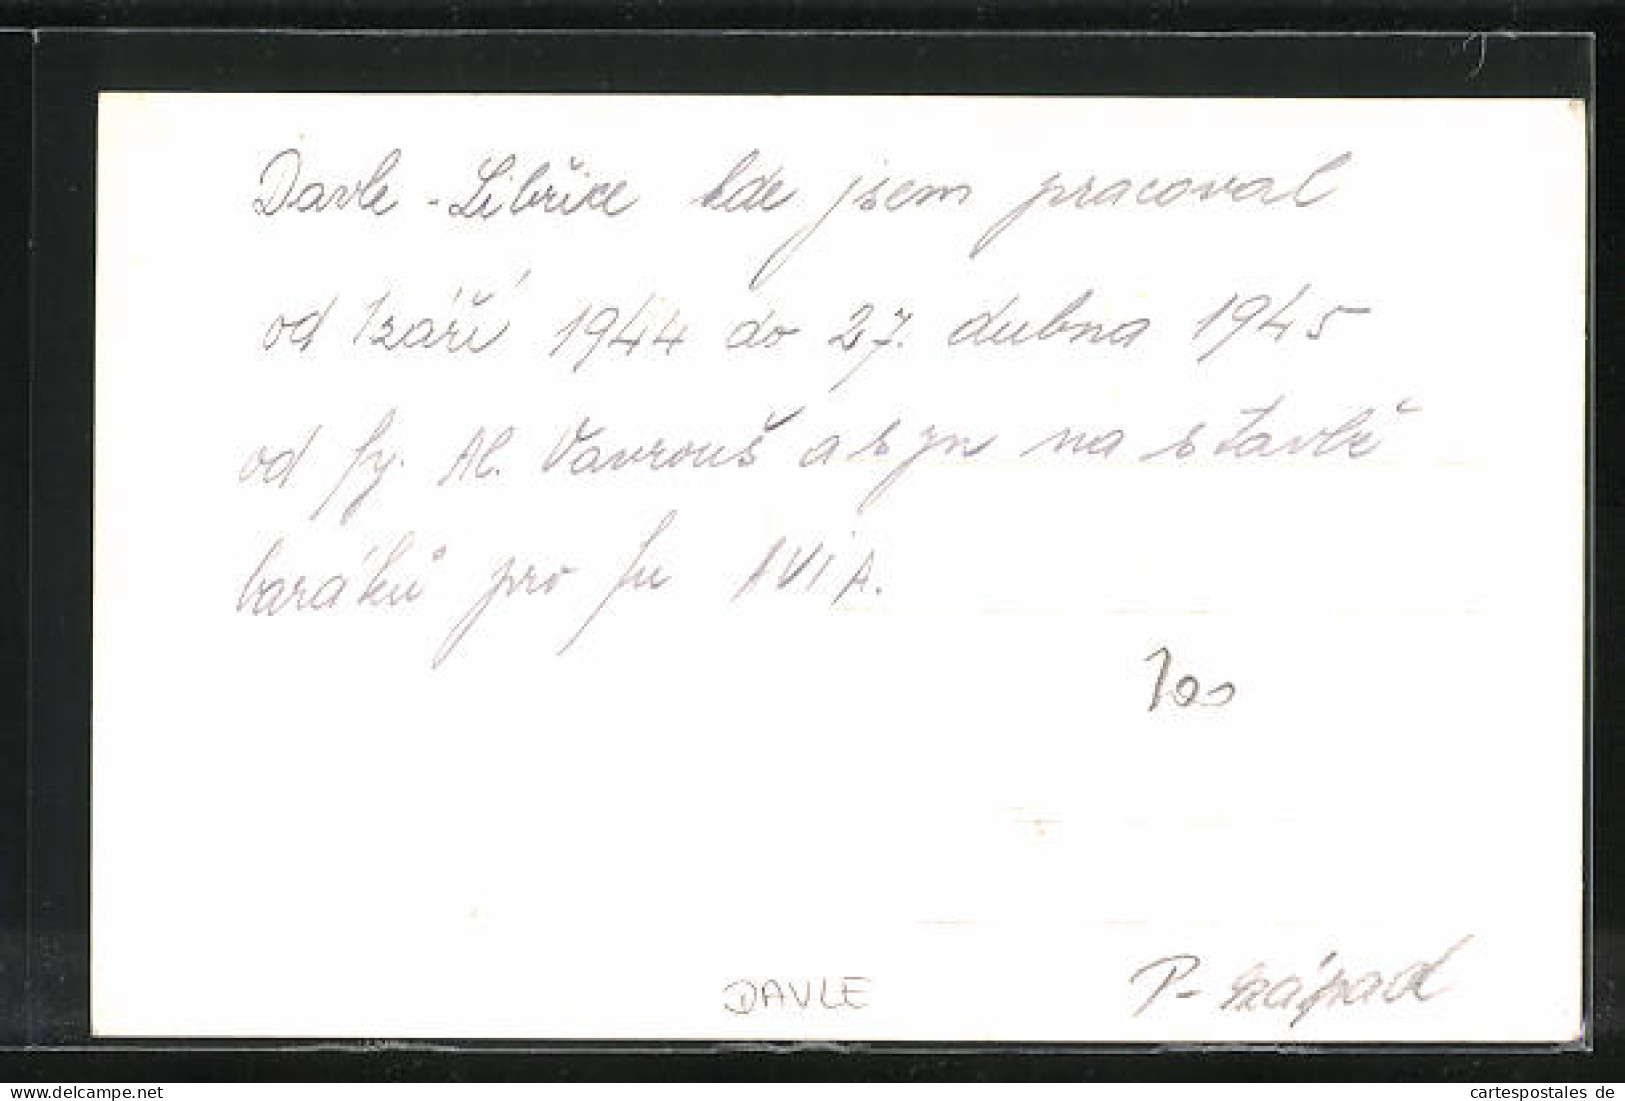 Davle - Libřice kde jsem pracoval
od 1 září 1944 do 27. dubna 1945
od fy. Al. Vavrouš a syn na stavbě
baráků pro fu AVIA.
100
DAVLE
P- západ
cartespostales de